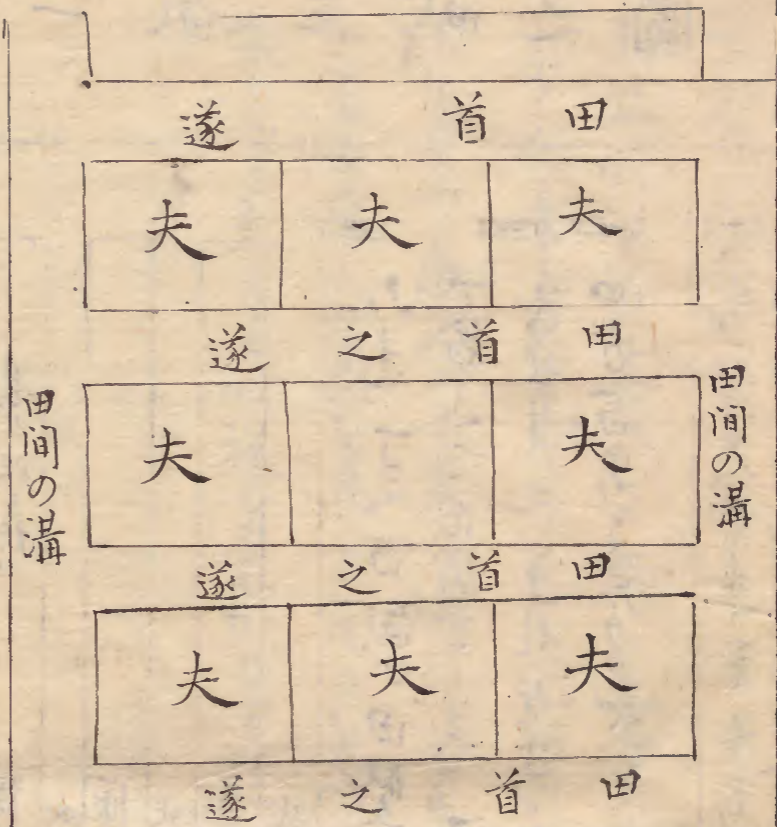 田首遂
夫夫夫
田首之遂
田間の溝
夫夫
田間の溝
田首之遂
夫夫夫
田首之遂